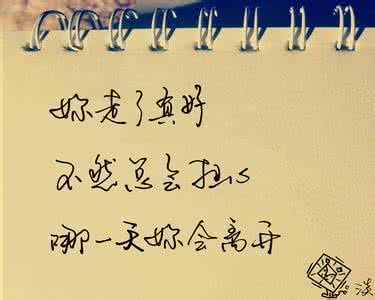 妳走了真好
不然总会担心
哪一天妳会离开